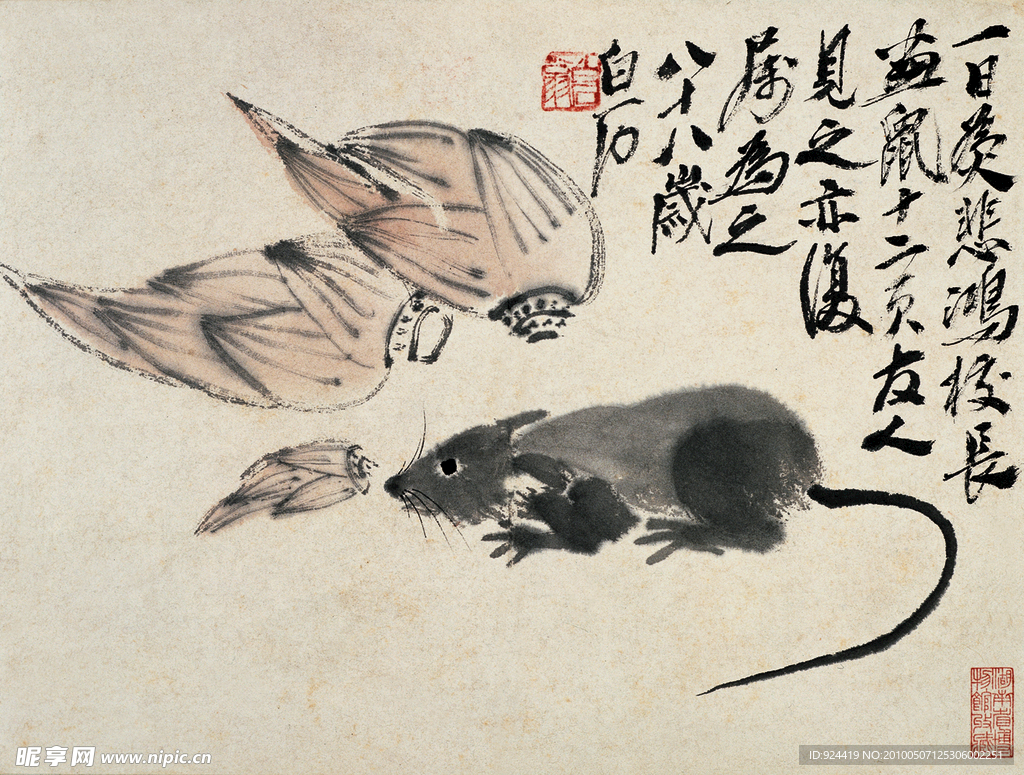 一日悲鴻校長
畫鼠十二頁友人
見之亦復
属為之
八十八歲
白石
湖南省博
物館收藏
昵享网 www.nipic.cn
ID:924419 NO:20100507125306002251